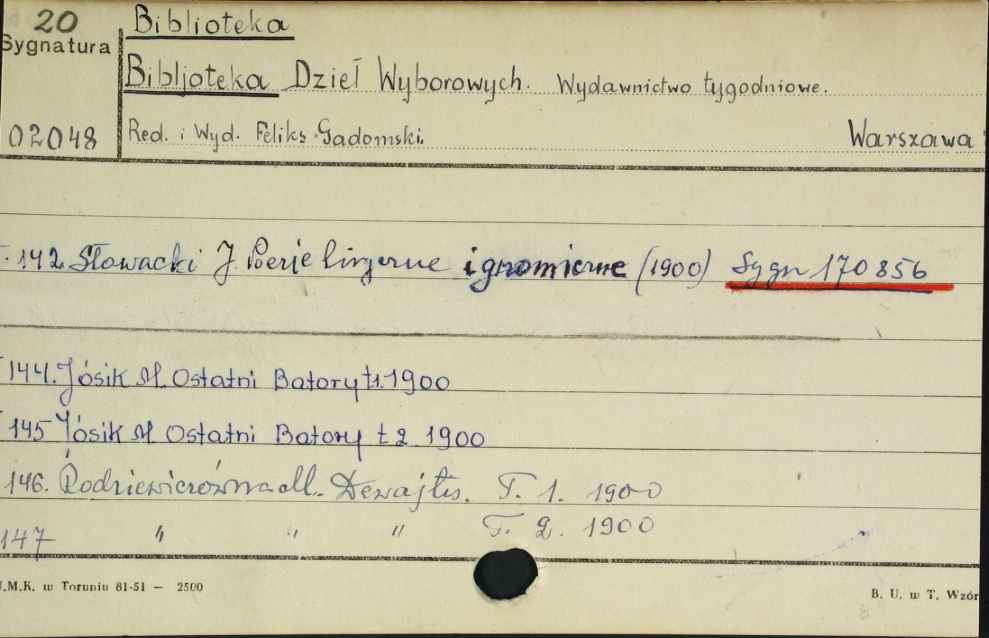 20
Biblioteka
Sygnatura
Bibljoteka Dzieł Wyborowych. Wydawnictwo tygodniowe.
02048
Red. i Wyd. Feliks Gadomski. Warszawa
142 Słowacki J. Poezje liryczne i gnomiczne (1900) Sygn 170856
144. Jósik M. Ostatni Batory t.1. 1900
145 Jósik M Ostatni Batory t 2 1900
146. Rodziewiczówna M. Dewajtis. T. 1. 1900
147 " " " T. 2. 1900
U.M.K. w Toruniu 81-51 — 2500
B. U. w T. Wzór